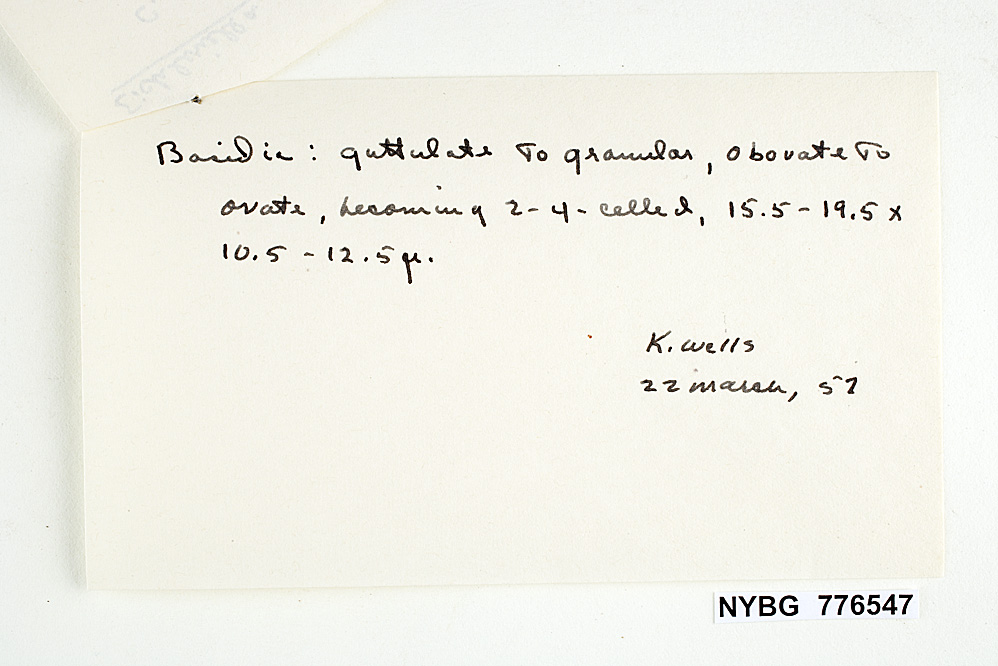 Basidia: guttulate to granular, obovate to
ovate, becoming 2-4-celled, 15.5-19.5 x
10.5-12.5 µ.
K. Wells
22 March, 57
NYBG 776547